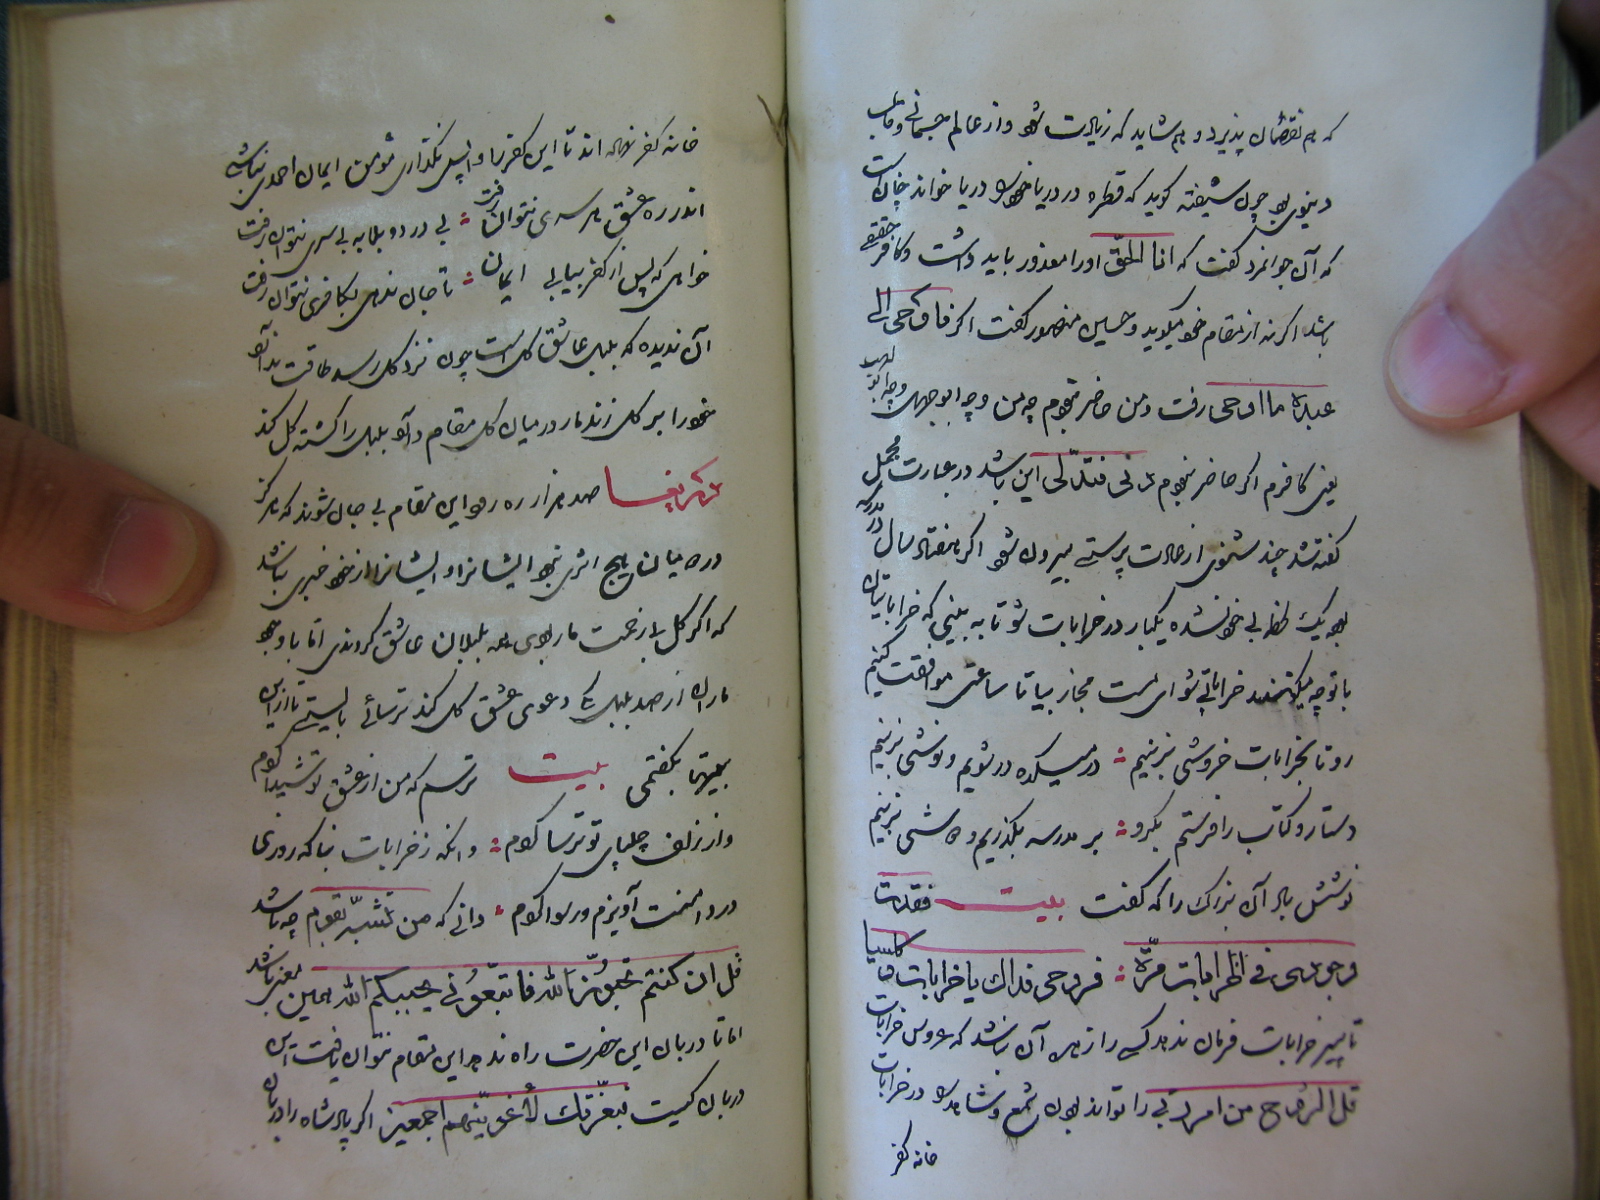 که هم نقصان پذیرد و هم شاید که زیادت شود و از عالم جسمانی و قالب
دینوی بود چون شیفته گوید که قطره در دریا خود را دریا خواند چنان است
که آن جوانمرد گفت که انا الحق او را معذور باید داشت و کافر حقیقی
باشد اگر نه از مقام خود میگوید و حسین منصور گفت اگر فاوحی الی
عبده ما اوحی رفت و من حاضر نبودم چه من و چه ابوجهل و چه ابو لهب
یعنی کافرم اگر حاضر نبودم دنی فتدلی این باشد در عبارت مجمل
گفته شد چند شنوی از عادت پرستی بیرون شو اگر هفتاد سال در مدرسه
بود یک لحظه بی خود نشده یکبار در خرابات شو تا به بینی که خراباتیان
با تو چه میکنند خراباتی شو ای مست مجاز بیا تا ساعتی موافقت کنیم
رو تا بخرابات خروشی بزنیم در میکده در شویم و نوشی بزنیم
دستار و کتاب را فرستم بگرو بر مدرسه بگذریم و دوشی بزنیم
نوشش باد آن بزرگ را که گفت بیت فقدت
وجودی فی الخرابات مرّة فروحی فداک یا خرابات کلیسیا
تا پیر خرابات فرمان ندهد کسی را زهره آن نباشد که عروس خرابات
قل الروح من امر ربی را تواند بودن شمع و شاهد را در خرابات
خانه کفر
خانه کفر نهاده اند تا این کفر را واپس نگذاری مومن ایمان احمدی نباشی
اندر ره عشق سرسری نتوان رفت بی درد و بلا به بی سری نتوان رفت
خواهی که پس از کفر بیابی ایمان تا جان ندهی بکافری نتوان رفت
آن ندیده که بلبل عاشق گل است چون نزد گل رسد طاقت ندارد
خود را بر گل زند خار در میان گل مقام دارد بلبل را کشته گل کند
دریغا صد هزار ره رو این مقام بی جان شوند که هرگز
در جهان هیچ اثری نبود ایشانرا و ایشانرا از خود خبری نباشد
که اگر گل بی زحمت خار بودی همه بلبلان عاشق گروندی اما با وجود
خار از صد بلبل یکی دعوی عشق گل کند ترسائی بایستی تا از این
بیتها بگفتمی بیت ترسم که من از عشق تو شیدا گردم
وز زلف چلیپای تو ترسا گردم وانگه ز خرابات نباگه روزی
در دامنت آویزم و رسوا گردم دانی که من تشبّه بقوم چه باشد
قل ان کنتم تحبون الله فاتبعونی یحببکم الله همین معنی باشد
اما تا دربان این حضرت راه ندهد این مقام نتوان یافت این
دربان کیست فبعزتک لاغوینهم اجمعین اگر پادشاه را دربان